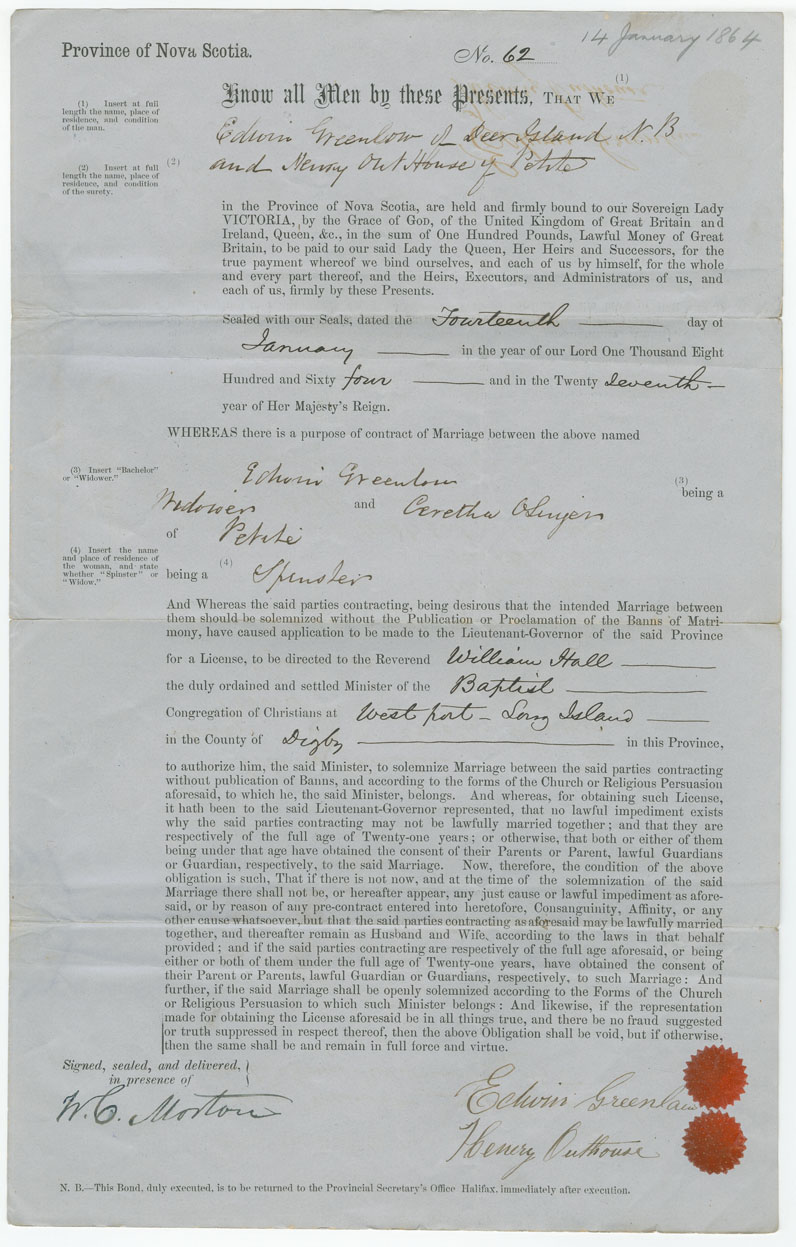 14 January 1864
Province of Nova Scotia.
No. 62
(1)
Know all Men by these Presents, THAT WE
(1) Insert at full
length the name, place of
residence, and condition
of the man.
Edwin Greenlow of Deer Island N.B
(2)
and Henry OutHouse of Petite
(2) Insert at full
length the name, place of
residence, and condition
of the surety.
in the Province of Nova Scotia, are held and firmly bound to our Sovereign Lady
VICTORIA, by the Grace of GOD, of the United Kingdom of Great Britain and
Ireland, Queen, &c., in the sum of One Hundred Pounds, Lawful Money of Great
Britain, to be paid to our said Lady the Queen, Her Heirs and Successors, for the
true payment whereof we bind ourselves, and each of us by himself, for the whole
and every part thereof, and the Heirs, Executors, and Administrators of us, and
each of us, firmly by these Presents.
Sealed with our Seals, dated the Fourteenth day of
January in the year of our Lord One Thousand Eight
Hundred and Sixty four and in the Twenty Seventh
year of Her Majesty's Reign.
WHEREAS there is a purpose of contract of Marriage between the above named
(3) Insert "Bachelor"
or "Widower."
Edwin Greenlow (3) being a
Widower and Ceretha
of Petite
(4) Insert the name
and place of residence of
the woman, and state
whether "Spinster" or
"Widow."
being a (4) Spinster
And Whereas the said parties contracting, being desirous that the intended Marriage between
them should be solemnized without the Publication or Proclamation of the Banns of Matri-
mony, have caused application to be made to the Lieutenant-Governor of the said Province
for a License, to be directed to the Reverend William Hall
the duly ordained and settled Minister of the Baptist
Congregation of Christians at West port - Long Island
in the County of Digby in this Province,
to authorize him, the said Minister, to solemnize Marriage between the said parties contracting
without publication of Banns, and according to the forms of the Church or Religious Persuasion
aforesaid, to which he, the said Minister, belongs. And whereas, for obtaining such License,
it hath been to the said Lieutenant-Governor represented, that no lawful impediment exists
why the said parties contracting may not be lawfully married together; and that they are
respectively of the full age of Twenty-one years; or otherwise, that both or either of them
being under that age have obtained the consent of their Parents or Parent, lawful Guardians
or Guardian, respectively, to the said Marriage. Now, therefore, the condition of the above
obligation is such, That if there is not now, and at the time of the solemnization of the said
Marriage there shall not be, or hereafter appear, any just cause or lawful impediment as afore-
said, or by reason of any pre-contract entered into heretofore, Consanguinity, Affinity, or any
other cause whatsoever, but that the said parties contracting as aforesaid may be lawfully married
together, and thereafter remain as Husband and Wife, according to the laws in that behalf
provided; and if the said parties contracting are respectively of the full age aforesaid, or being
either or both of them under the full age of Twenty-one years, have obtained the consent of
their Parent or Parents, lawful Guardian or Guardians, respectively, to such Marriage: And
further, if the said Marriage shall be openly solemnized according to the Forms of the Church
or Religious Persuasion to which such Minister belongs: And likewise, if the representation
made for obtaining the License aforesaid be in all things true, and there be no fraud suggested
or truth suppressed in respect thereof, then the above Obligation shall be void, but if otherwise,
then the same shall be and remain in full force and virtue.
Signed, sealed, and delivered,
in presence of
W. C. Morton
Edwin Greenlaw
Henery Outhouse
N. B.—This Bond, duly executed, is to be returned to the Provincial Secretary's Office Halifax, immediately after execution.